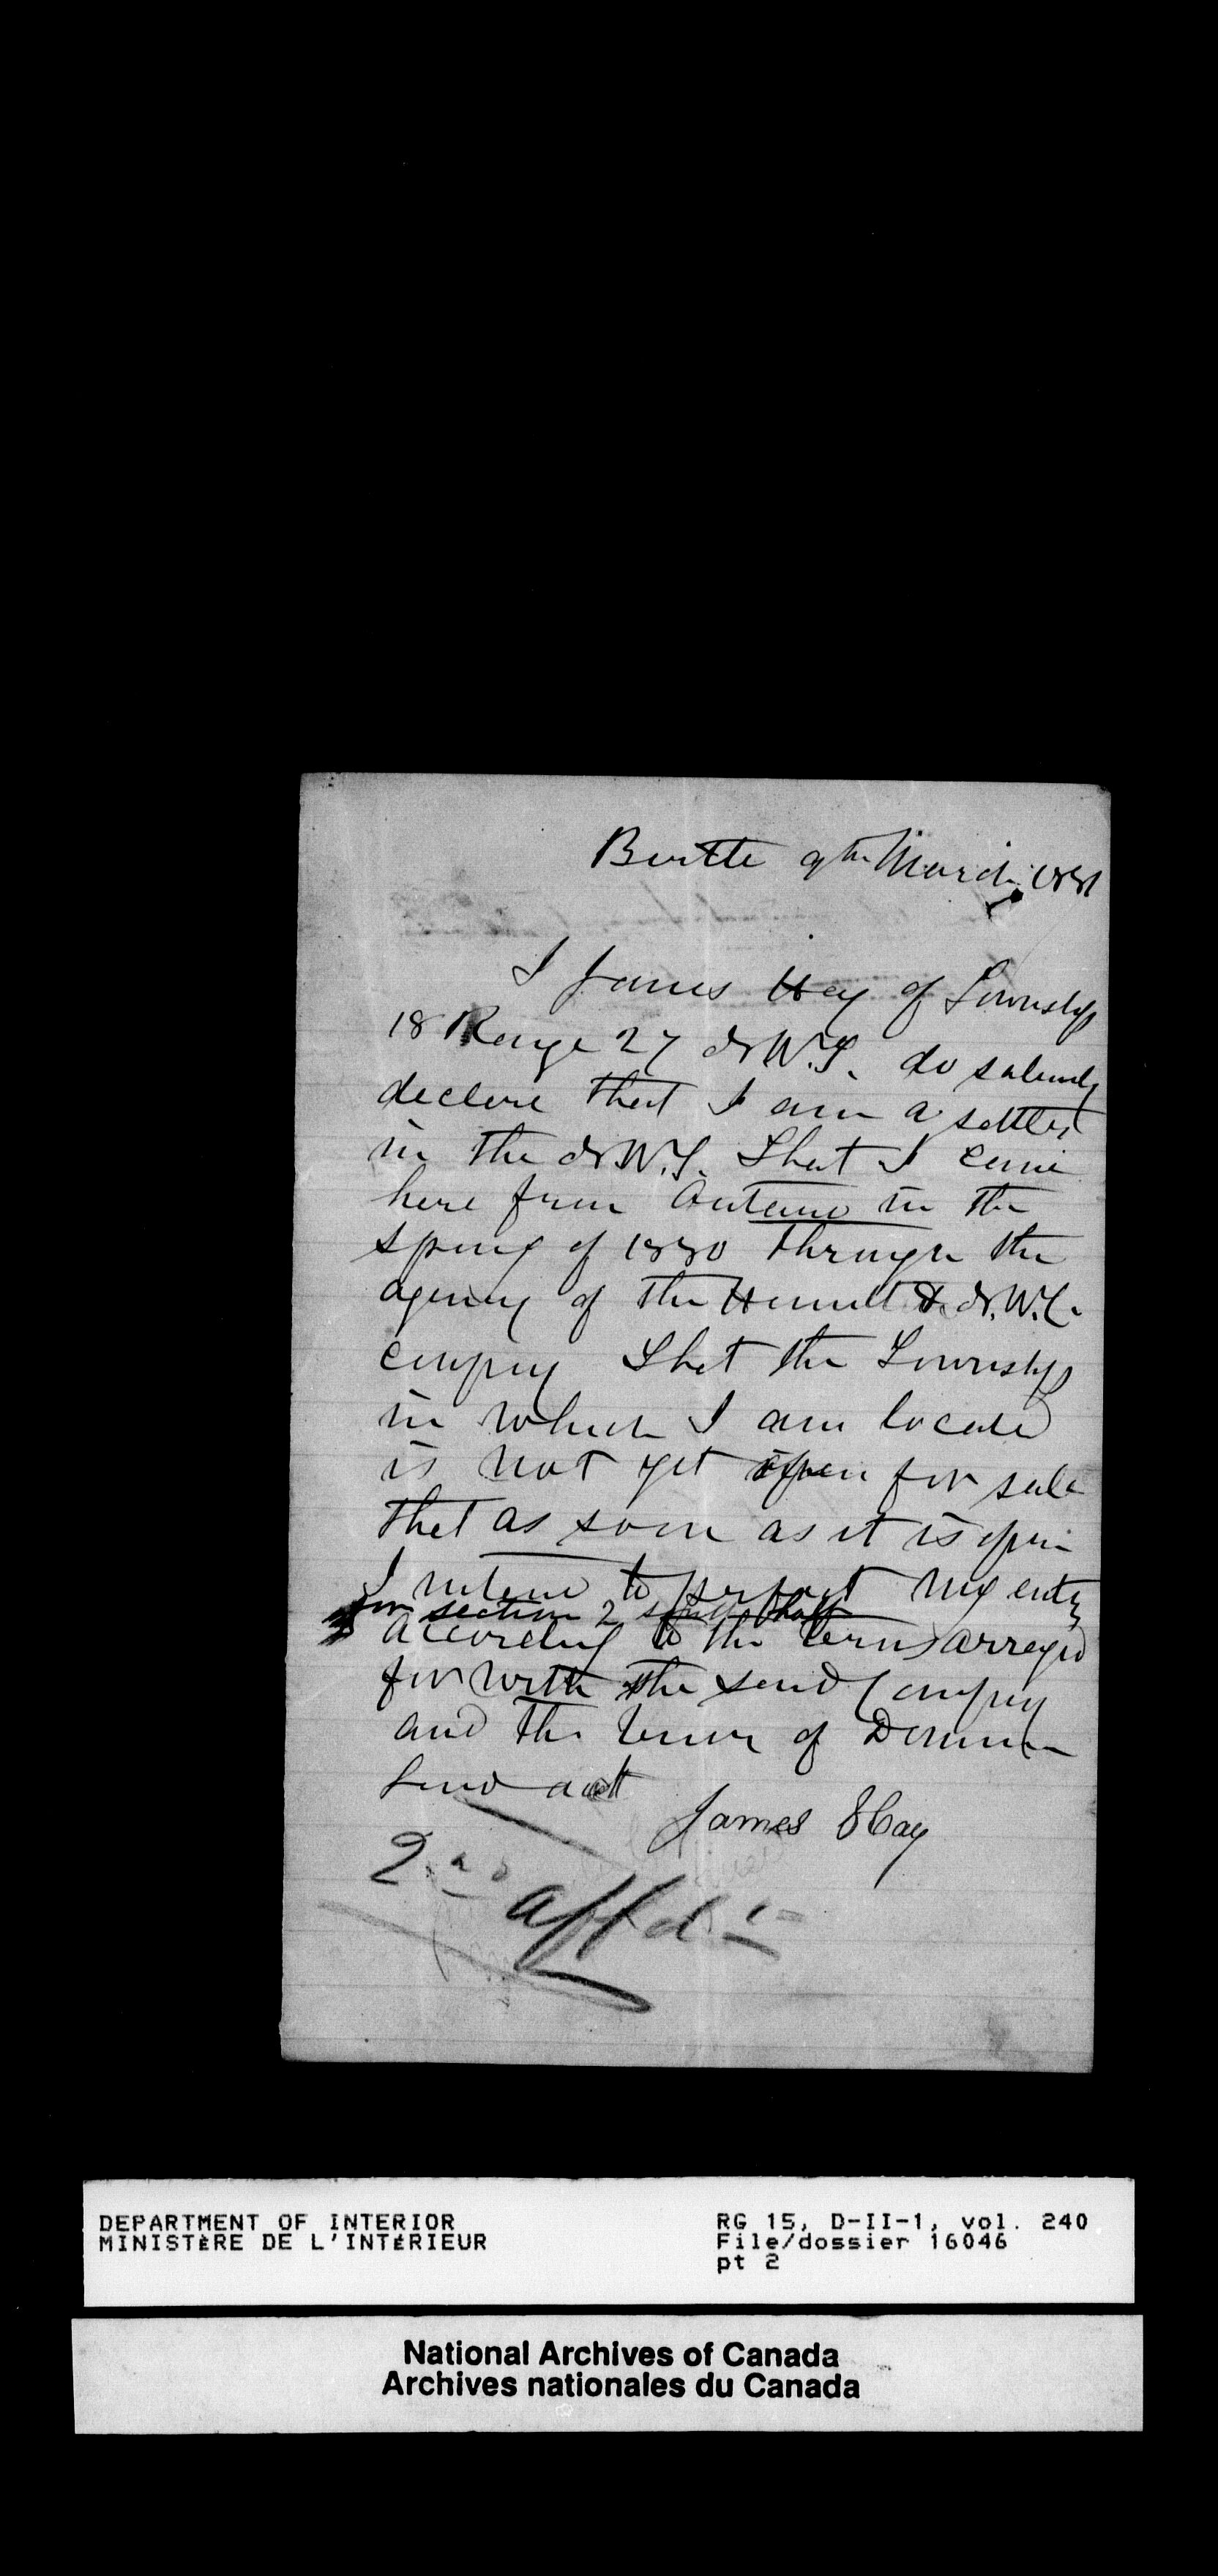 Birtle 9th March 1881
I James Hay of Township
18 Range 27 N.W.T. do solemnly
declare that I am a settler
in the N.W.T. That I came
here from Ontario in the
spring of 1880 through the
agency of the & N.W.C.
company That the Township
in which I am located
is not yet open for sale
that as soon as it is open
I intend to perfect my entry
for section 2 south half
according to the terms arranged
for with the said Company
and the of Dominion
Land act
James Hay
2nd affd
DEPARTMENT OF INTERIOR
MINISTÈRE DE L'INTÉRIEUR
RG 15, D-II-1, vol. 240
File/dossier 16046
pt 2
National Archives of Canada
Archives nationales du Canada